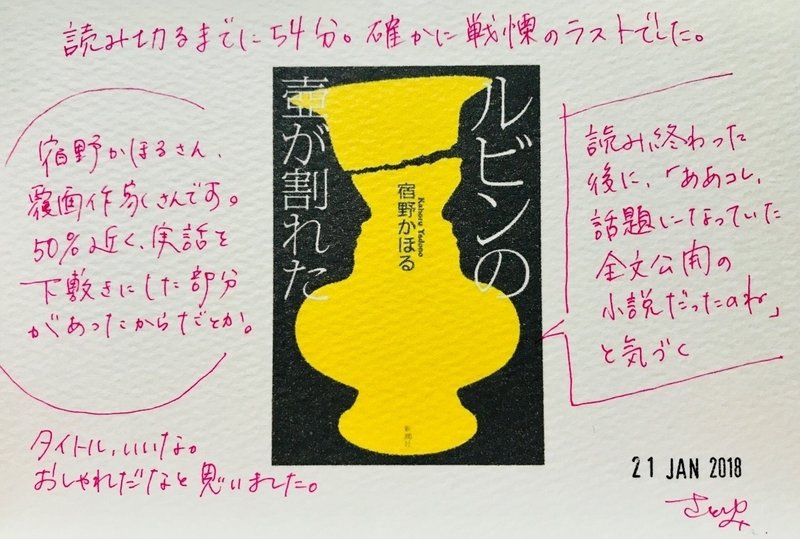 読み切るまでに54分。確かに戦慄のラストでした。
ルビンの
壺が割れた
宿野かほる
Kahoru Yadono
新潮社
宿野かほるさん、
覆面作家さんです。
50%近く、実話を
下敷きにした部分
があったからだとか。
読み終わった
後に、「ああコレ、
話題になっていた
全文公開の
小説だったのね」
と気づく
タイトル、いいな。
おしゃれだなと思いました。
21 JAN 2018
さとゆみ